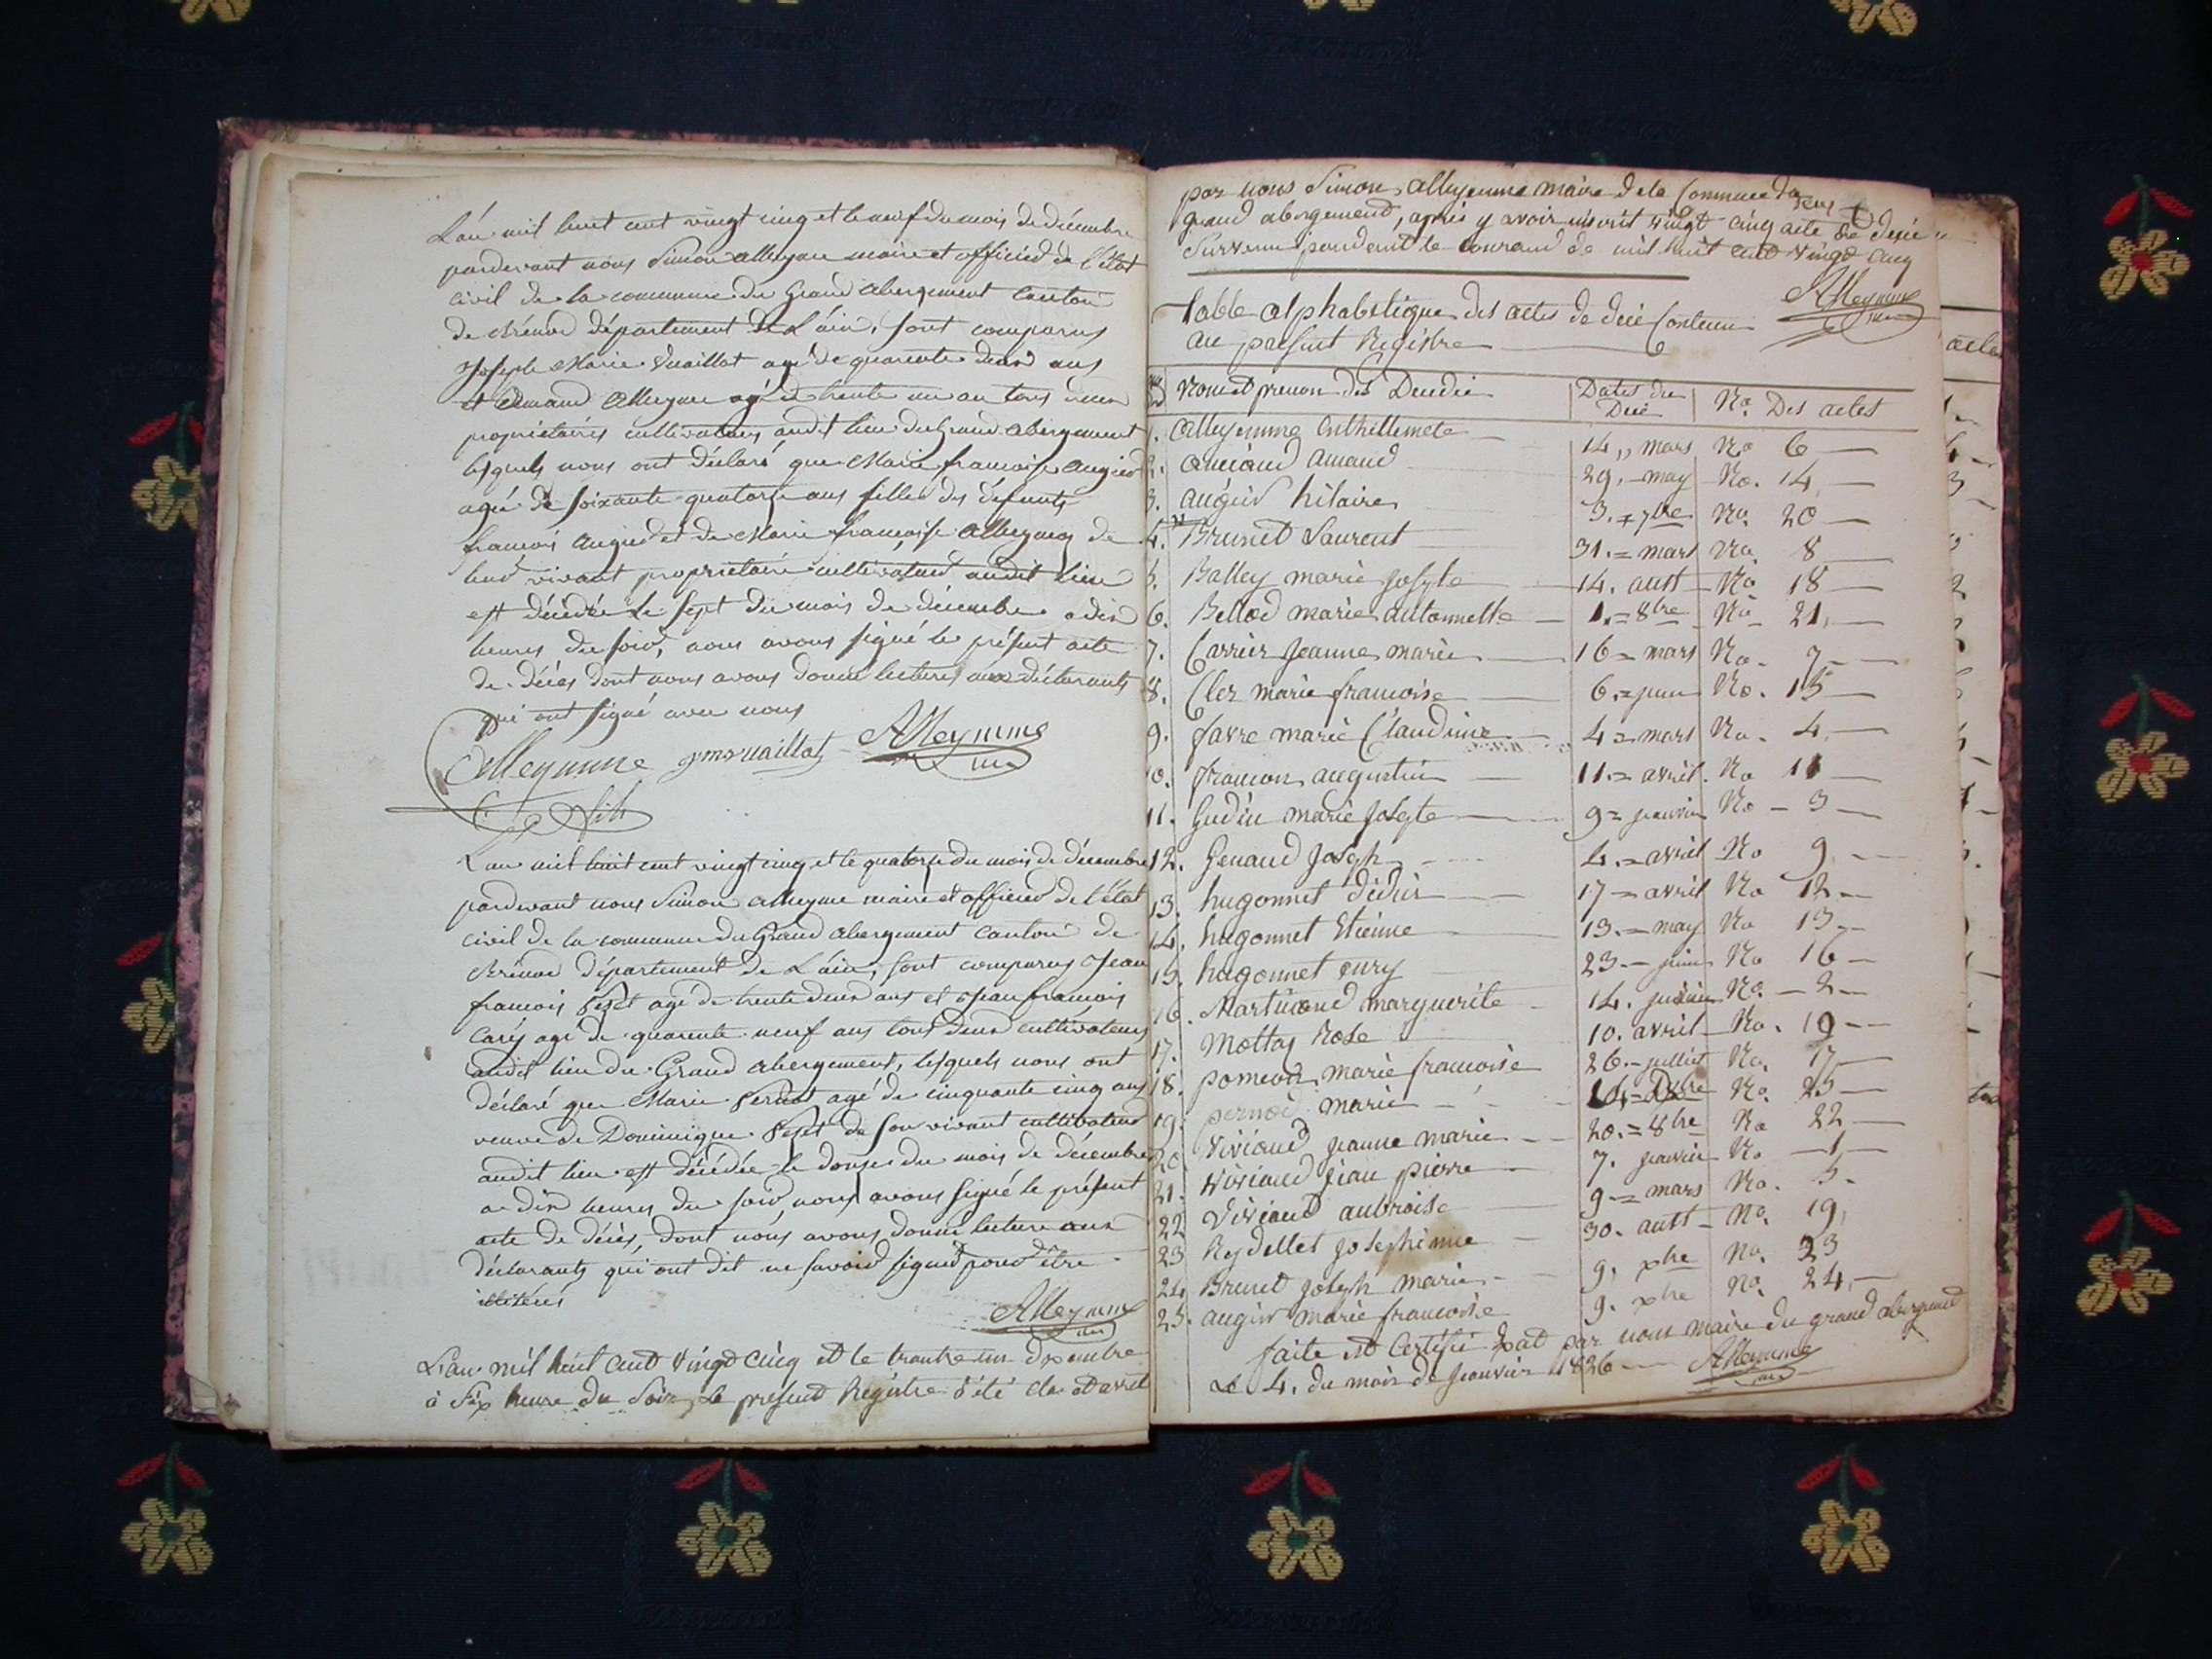 L'an mil huit cent vingt cinq et le neuf du mois de décembre
pardevant nous Simon alleyme maire et officier de l'état
civil de la commune du Grand abergement canton
de Brénod département de L'ain, sont comparus
Joseph Marie Vuaillat agé de quarente deux ans
et Armand Alleyme agé de trente un an tous deux
propriétaires cultivateurs audit lieu du Grand abergement
lesquels nous ont déclaré que Marie françoise augier
agée de soixante quatorze ans fille des défunts
françois augier et de Marie françoise Alleyme de
leur vivant propriétaire cultivateur audit lieu
est décédée le sept du mois de décembre a dix
heures du soir, nous avons signé le présent acte
de décès dont nous avons donné lecture aux déclarants
qui ont signé avec nous
Alleymme jmvuaillat Alleymme
fils
L'an mil huit cent vingt cinq et le quatorze du mois de décembre
pardevant nous Simon alleyme maire et officier de l'état
civil de la commune du Grand abergement canton de
Brénod département de L'ain, sont comparus Jean
francois agé de trente deux ans et Jean francois
Cary agé de quarente neuf ans tous deux cultivateurs
audit lieu du Grand abergement, lesquels nous ont
déclaré que Marie Pernod agé de cinquante cinq ans
veuve de Dominique de son vivant cultivateur
audit lieu est décédée le douze du mois de décembre
a dix heures du soir, nous avons signé le présent
acte de décès, dont nous avons donné lecture aux
déclarants qui ont dit ne savoir signer pour être
illiterés
Alleymme
L'an mil huit cent vingt cinq et le trante un
à six heure du soir, le présent Registre à été clos et areté
par nous Simon alleyemme maire de la commune du
grand abergement, après y avoir inscrit vingt cinq acte de décè
survenu pendant le courand de mil huit cent vingt cinq
Alleymme
table alphabetique des actes de décè contenu
au present Registre
Nom et prenom des Decedé Dates du Decé No. Des actes
1. Alleyemme 14 mars No 6
2. amand 29. may No. 14
3. augier hilaire 3. 7bre No. 20
4. Brunet Laurent 31. mars No. 8
5. Balley marie Josepte 14. autt No 18
6. Bellod marie antonnette 1. 8bre No 21
7. Carrier Jeanne marie 16 mars No. 7
8. Cler marie francoise 6. juin No. 15
9. favre marie Claudine 4 mars No. 4
10. francon augustin 11. avril No 11
11. Gudin marie Josepte 9 janvier No 3
12. Genaud Joseph 4. avril No 9
13. hugonnet 17 avril No 12
14. hugonnet Etienne 13. may No 13
15. hugonnet 23 juin No 16
16. marguerite 14. janvier No. 2
17. Mottas Rose 10. avril No. 10
18. marie francoise 26. jullliet No. 17
19. pernod marie 14 Dbre No. 25
20 Viviand Jeanne marie 20. 8bre No 22
21. Viviand jean pierre 7. janvier No 1
22 Viviand anbroise 9 mars No. 5
23 Reydellet Josephinne 30. autt No. 19
24 Brunet Joseph marie 9. xbre No. 23
25. augier marie francoise 9. xbre No. 24
faite et Certifié par nous maire du grand abergement
Le 4. du mois de janvier 1826 Alleymme